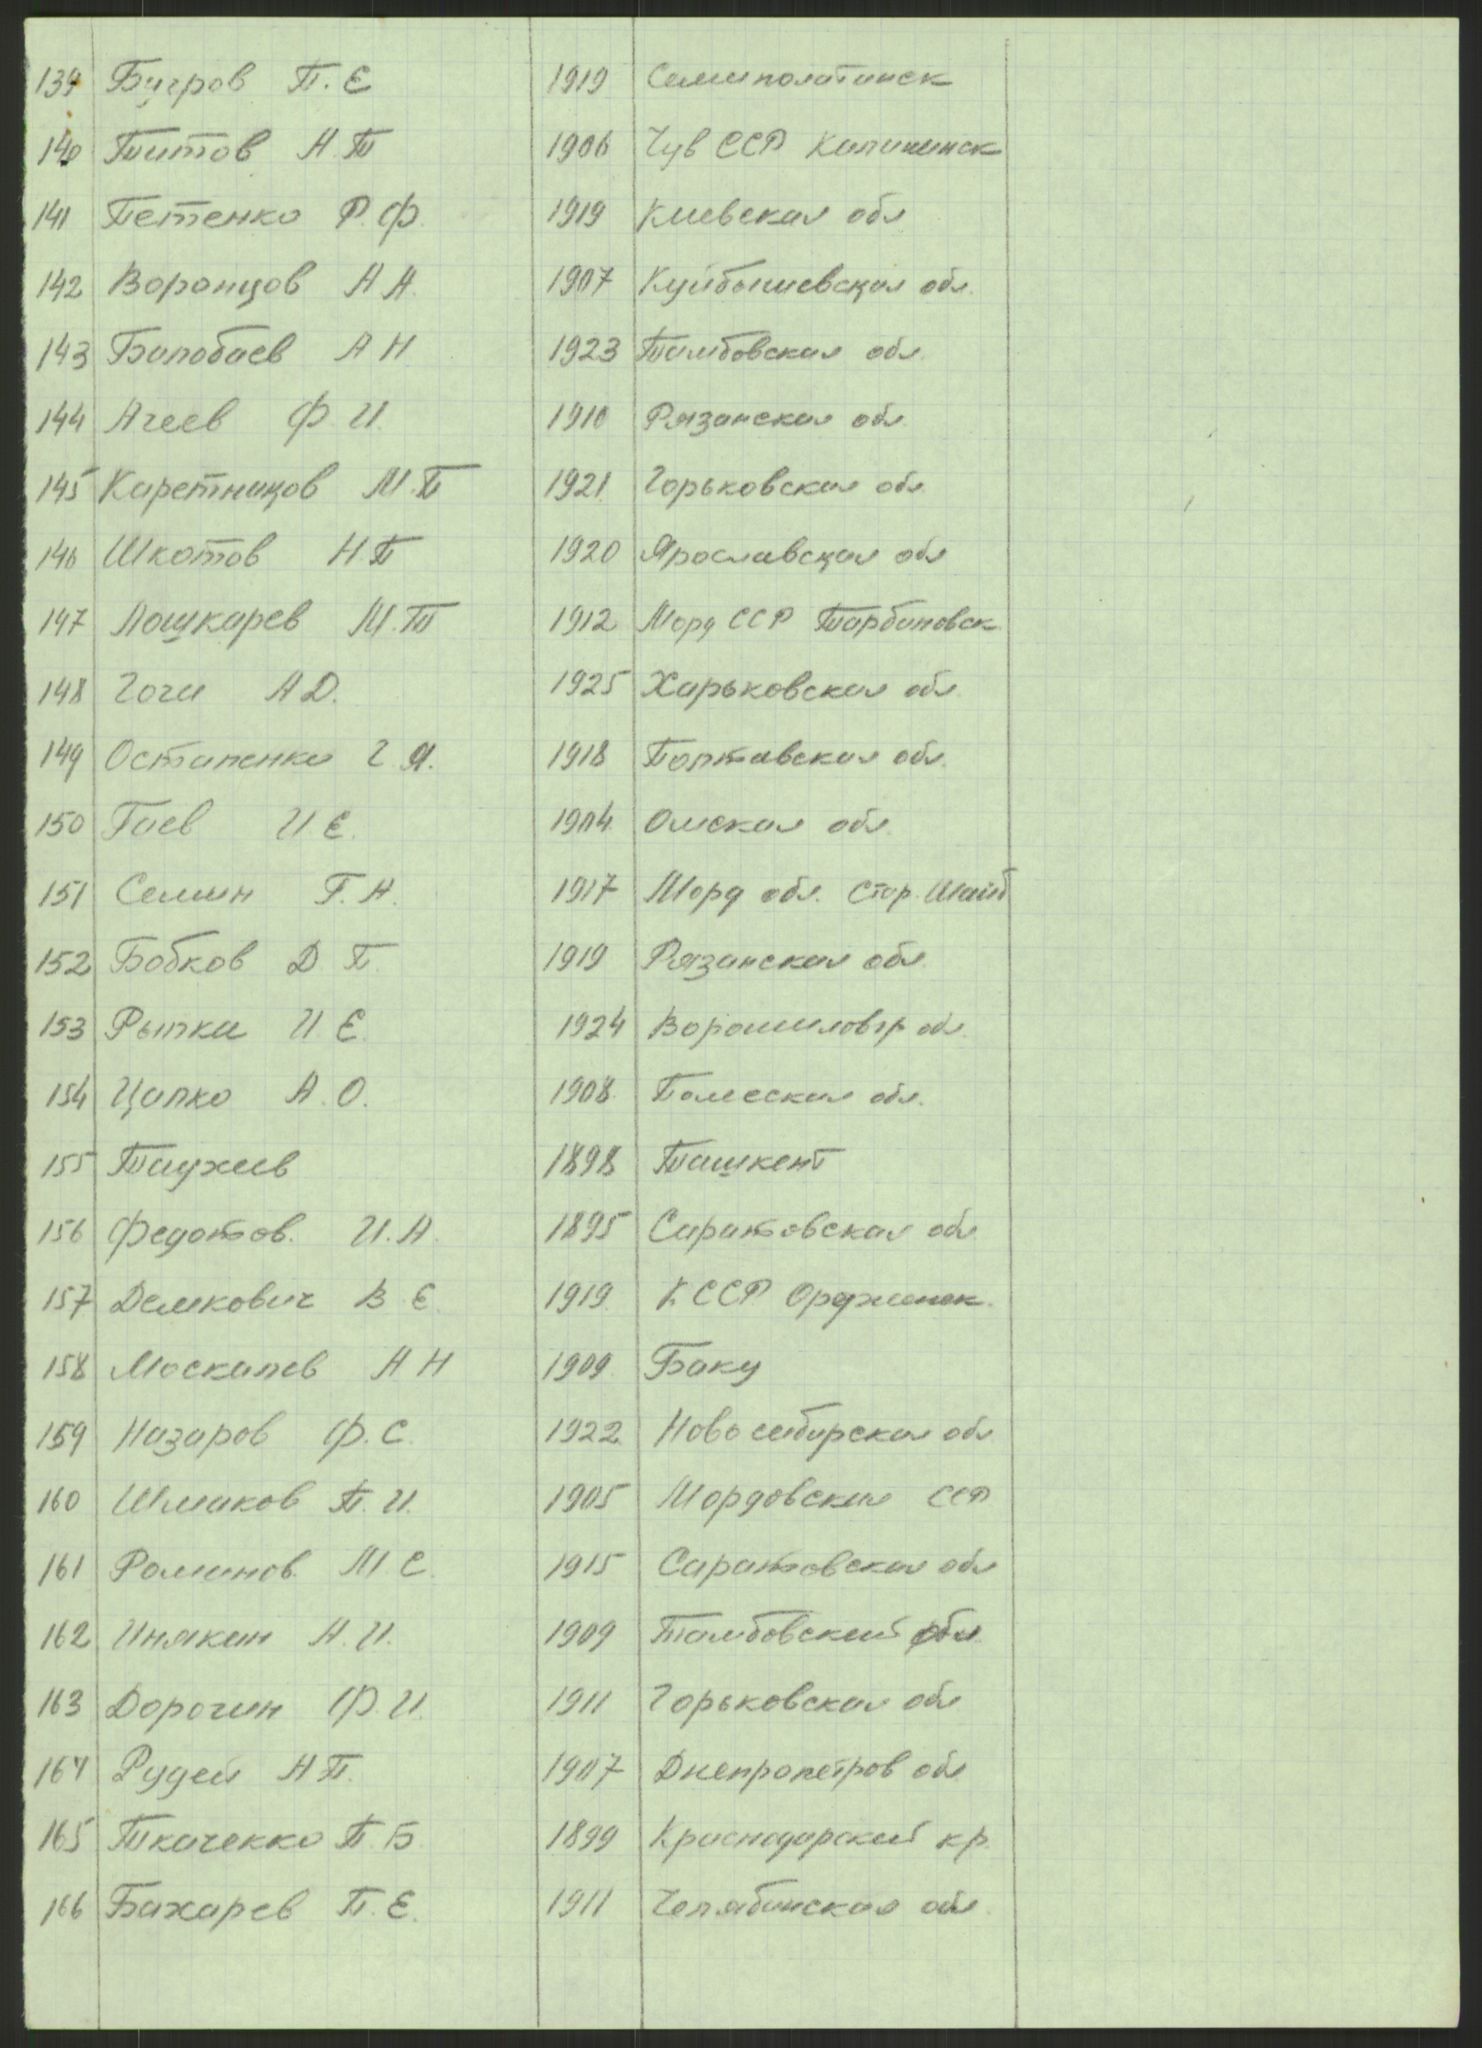 139 Бугров П. Е 1919 Семиполатинск
140 Титов Н. Т 1906 Чув ССР Калининск
141 Петенко Р. Ф. 1919 Киевская обл
142 Воронцов А А. 1907 Куйбышевская обл.
143 Балобаев А Н 1923 Тамбовская обл.
144 Агеев Ф. И. 1910 Рязанская обл
145 Каретников М. П 1921 Горьковская обл
146 Шкотов Н. П 1920 Ярославская обл
147 Лошкарев М. Т 1912 Морд ССР Тарбиновск
148 Гоги А Д. 1925 Харьковская обл.
149 Остапенко Г Я. 1918 Полтавская обл.
150 Гаев И. Е. 1904 Омская обл
151 Семин Г. А. 1917 Морд обл. Стар. Шайг
152 Бобков Д П. 1919 Рязанская обл.
153 Рыпка И Е. 1924 Ворошиловгр обл
154 Цапко А. О. 1908 Полесская обл.
155 Таужев 1898 Ташкент
156 Федотов. И. А. 1895 Саратовская обл
157 Демкович В Е. 1919 К ССР Орджонек.
158 Москалев А Н 1909 Баку
159 Назаров Ф. С. 1922 Новосибирская обл
160 Шмаков П. И. 1905 Мордовская ССР
161 Романов М С. 1915 Саратовская обл
162 Инякин А. И. 1909 Тамбовский обл
163 Дорогин Ф. И. 1911 Горьковская обл
164 Рудей Н П. 1907 Днепропетров обл
165 Ткаченко П. Б. 1899 Краснодарский кр.
166 Бахарев П. Е. 1911 Челябинская обл.